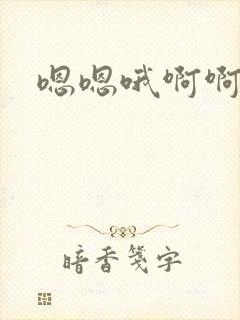 嗯嗯哦啊啊
暗香笺字